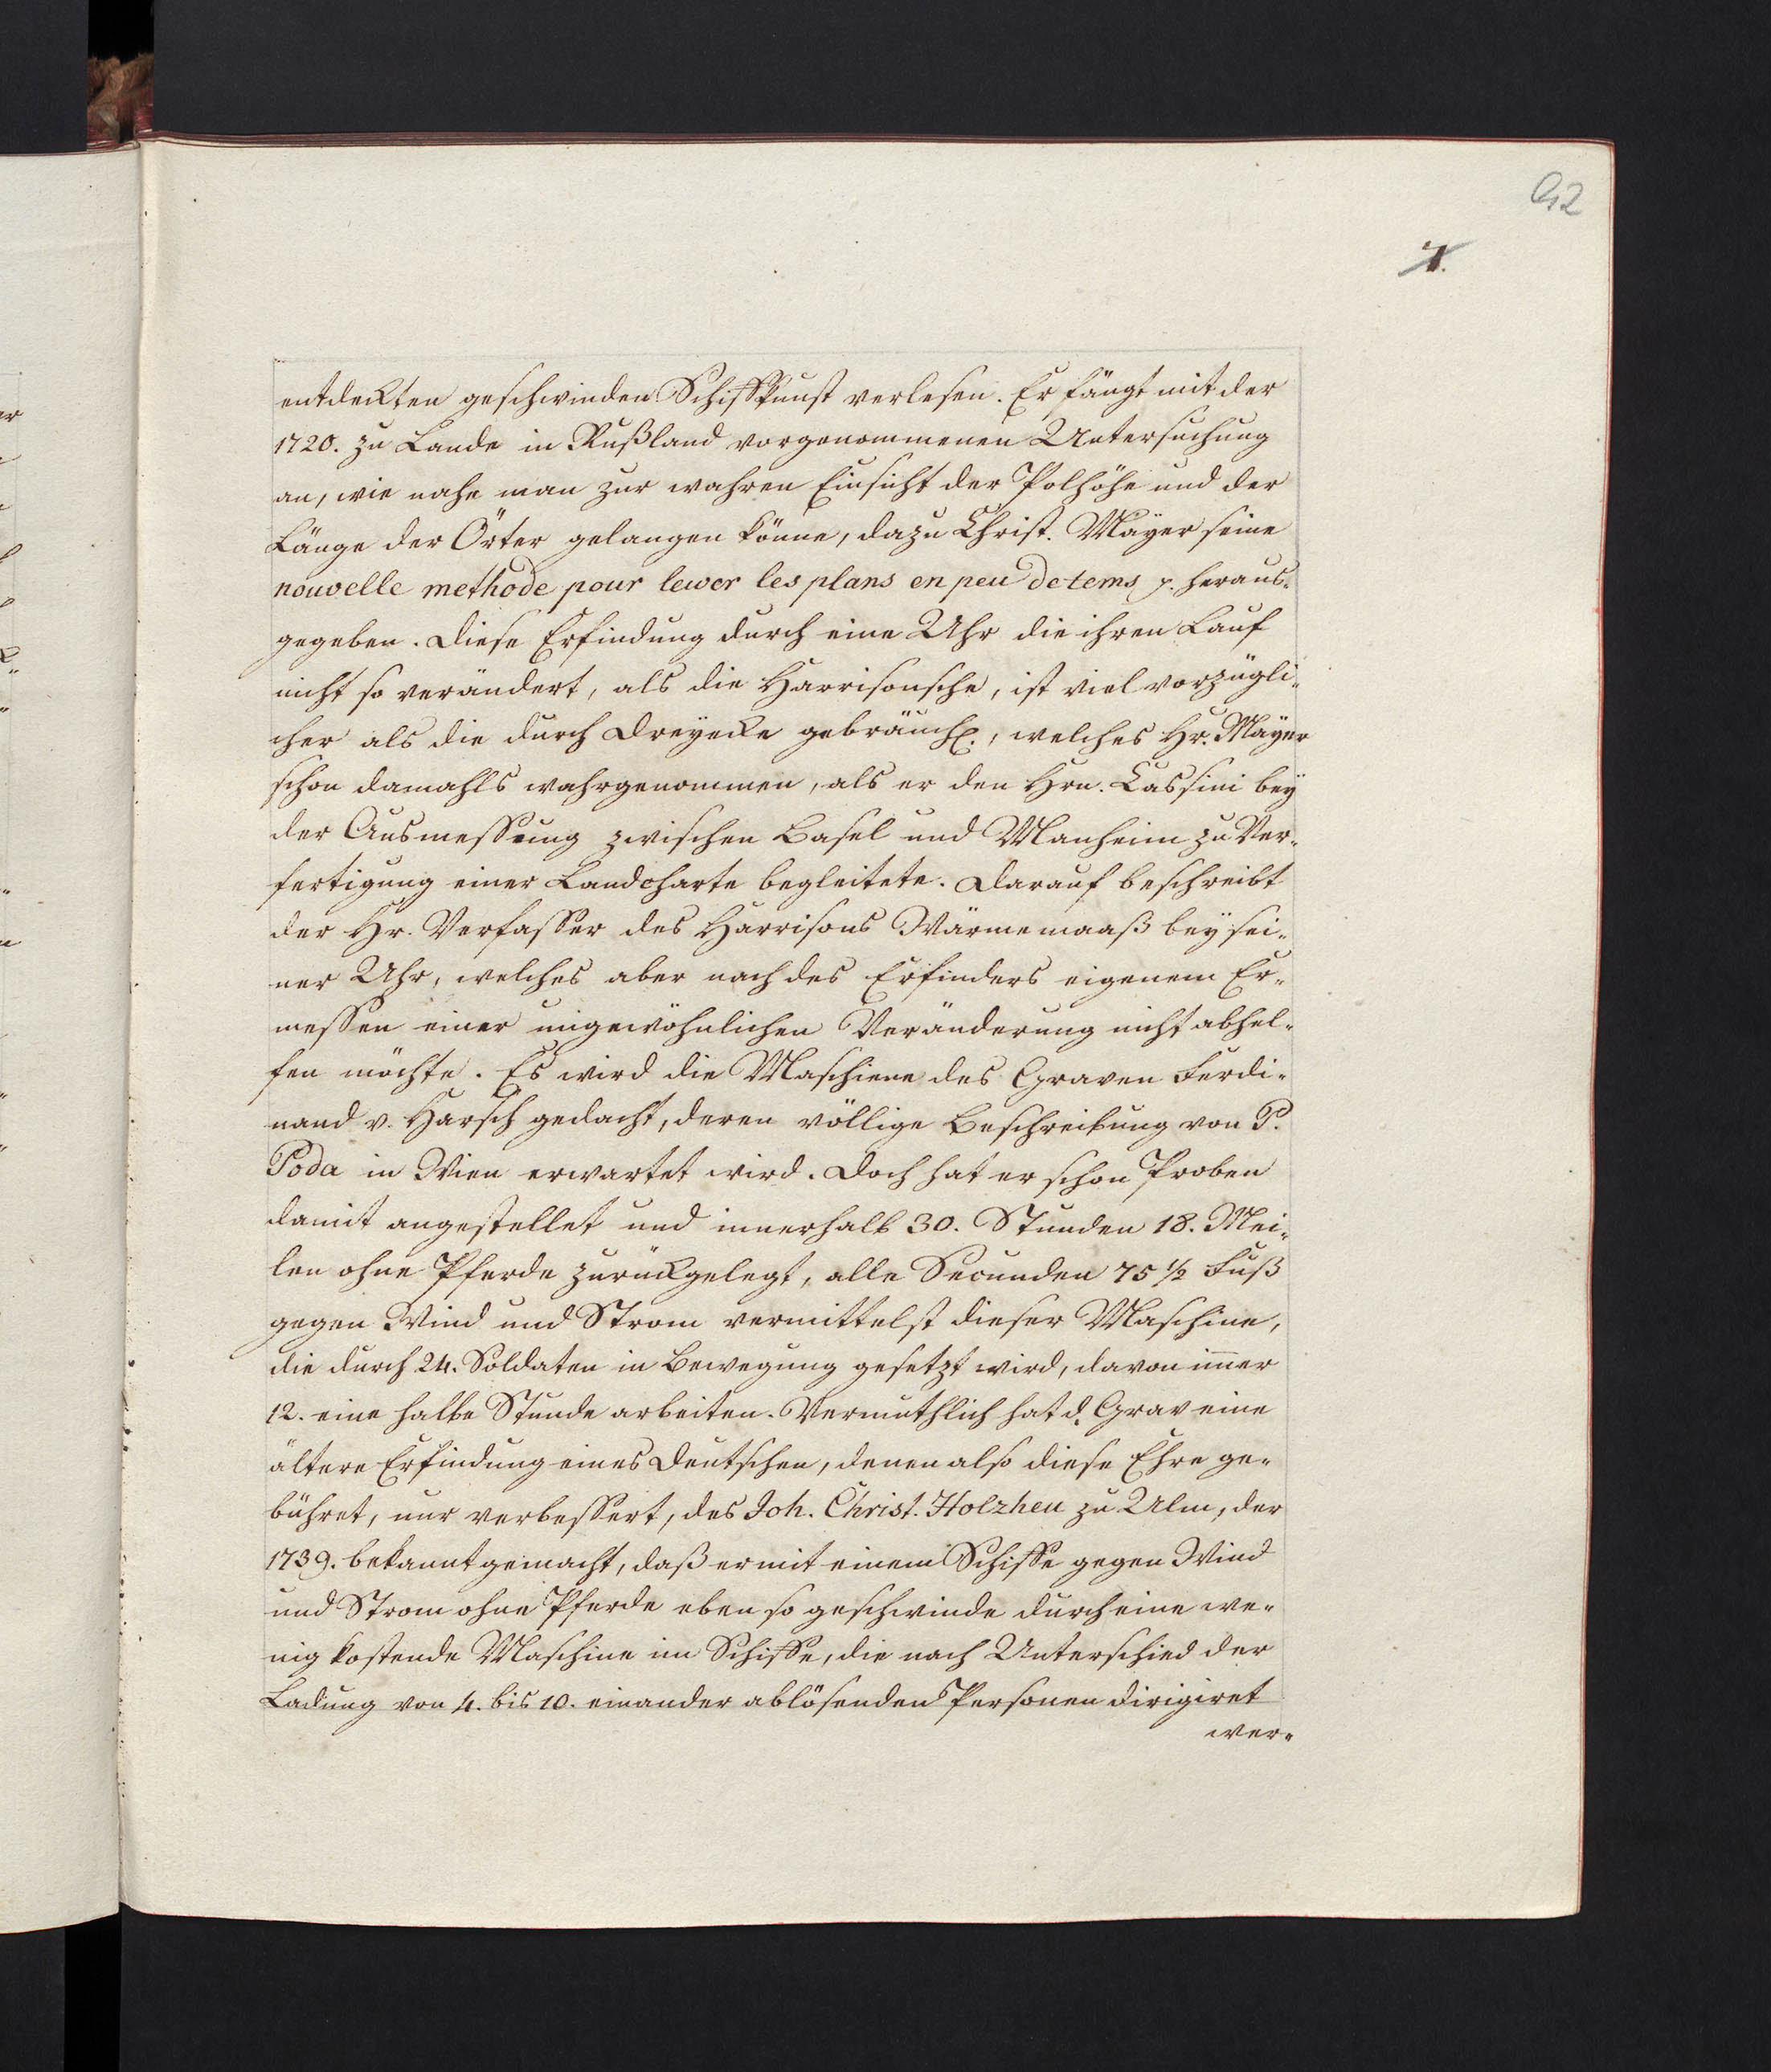 42
4.
entdeckten geschwinden Schiffkunst verlesen. Er fängt mit der
1720. zu Lande in Rußland vorgenommenen Untersuchung
an, wie nahe man zur wahren Einsicht der Polhöhe und der
Länge der Örter gelangen könne, dazu Christ. Mayer seine
nouvelle methode pour lewer les plans en peu de tems p. heraus-
gegeben. Diese Erfindung durch eine Uhr die ihren Lauf
nicht so verändert, als die Harrisonsche, ist viel vorzügli-
cher als die durch Dreyecke gebräuchl., welches Hr. Mayer
schon damahls wahrgenommen, als er den Hrn. Cassini bey
der Ausmessung zwischen Basel und Manheim zu Ver-
fertigung einer Landcharte begleitete. Darauf beschreibt
der Hr. Verfasser des Harrisons Wärmemaaß bey sei-
ner Uhr, welches aber nach des Erfinders eigenem Er-
messen einer ungewöhnlichen Veränderung nicht abhel-
fen möchte. Es wird die Maschiene des Graven Ferdi-
nand v. Harsch gedacht, deren völlige Beschreibung von P.
Poda in Wien erwartet wird. Doch hat er schon Proben
damit angestellet und innerhalb 30. Stunden 18. Mei-
len ohne Pferde zurückgelegt, alle Secunden 75 1/2 Fuß
gegen Wind und Strom vermittelst dieser Maschine,
die durch 24. Soldaten in Bewegung gesetzt wird, davon im̅er
12. eine halbe Stunde arbeiten. Vermuthlich hat d. Grav eine
ältere Erfindung eines Deutschen, denen also diese Ehre ge-
bühret, nur verbessert, des Joh. Christ. Holzheu zu Ulm, der
1739. bekannt gemacht, daß er mit einem Schiffe gegen Wind
und Strom ohne Pferde eben so geschwinde durch eine we-
nig kostende Maschine im Schiffe, die nach Unterschied der
Ladung von 4. bis 10. einander ablösenden Personen dirigiret
wer-